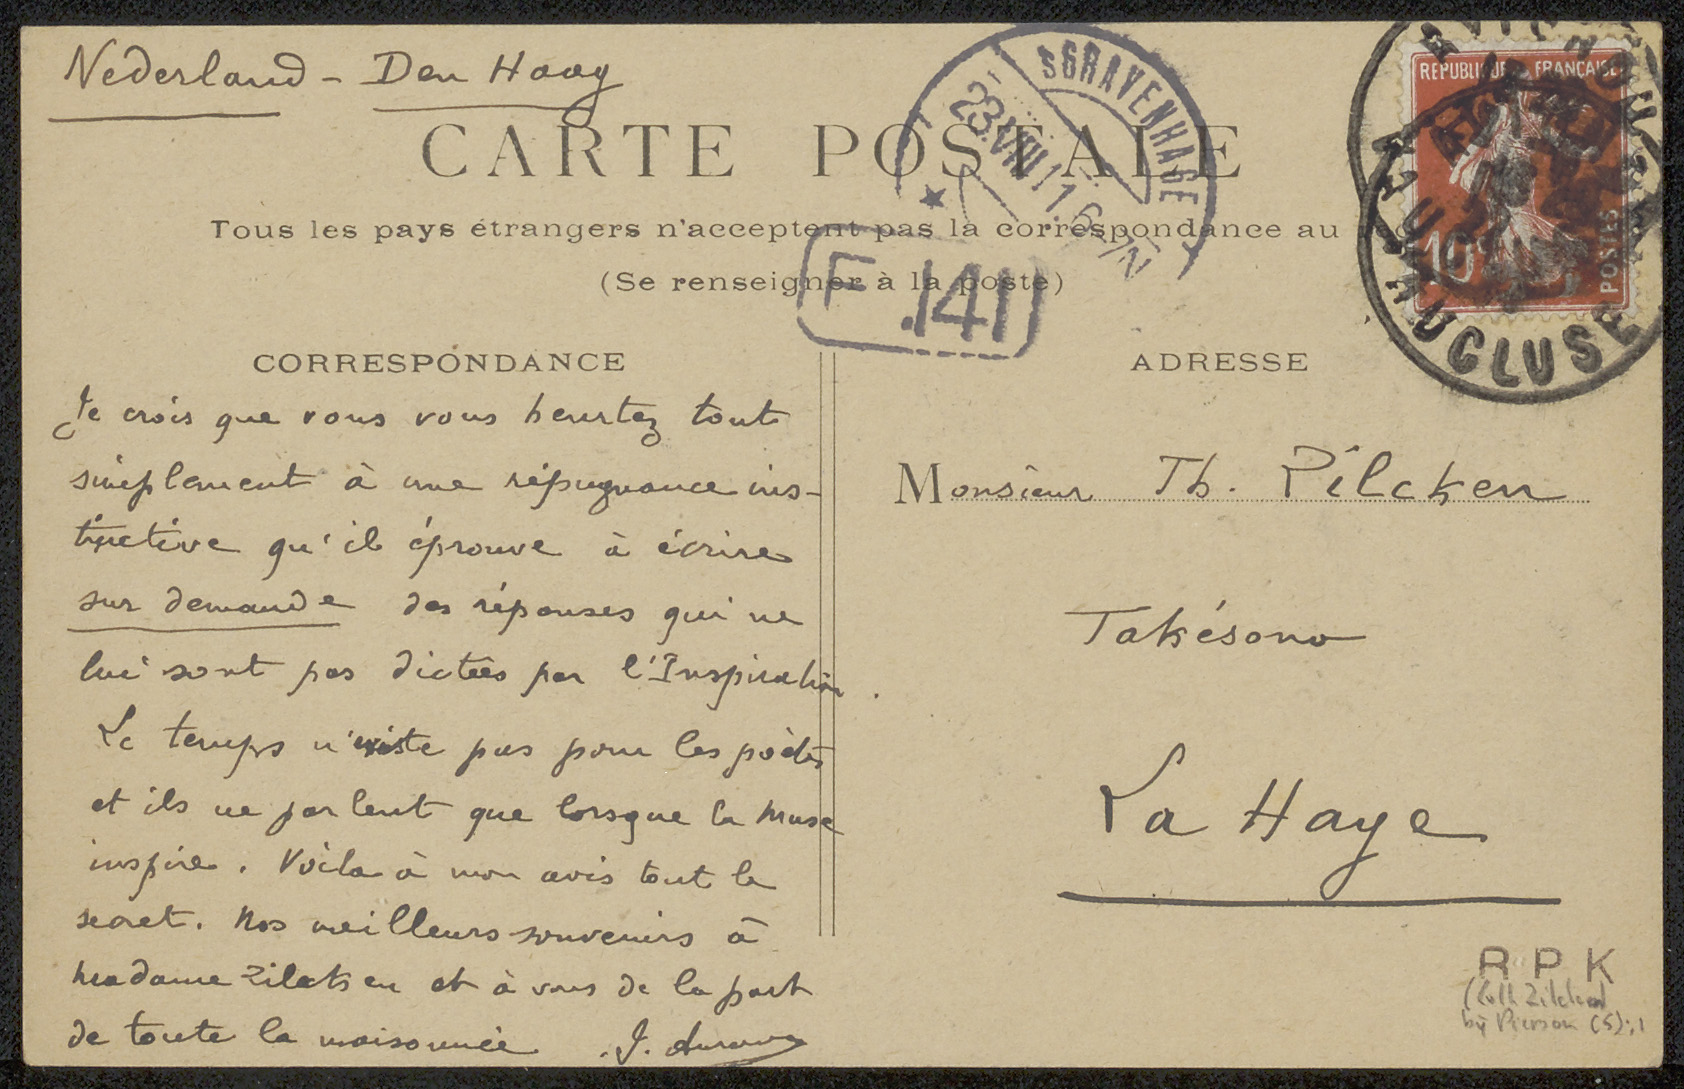 Nederland - Den Haag
CARTE POSTALE
SGRAVENHAGE
23.VIII 11 6-7N
Tous les pays étrangers n'acceptent pas la correspondance au
(Se renseigner à la poste)
F .1411
REPUBLIQUE FRANÇAISE
10c
POSTES
VAUCLUSE
CORRESPONDANCE
Je crois que vous vous heurtez tout
simplement à une répugnance ins-
tinctive qu'il éprouve à écrire
sur demande des réponses qui ne
lui sont pas dictées par l'Inspiration.
Le temps n'existe pas pour les poètes
et ils ne parlent que lorsque la Muse
inspire. Voila à mon avis tout le
secret. Nos meilleurs souvenirs à
Madame Zilcken et à vous de la part
de toute la maisonnée. J. Aurouze
ADRESSE
Monsieur Th. Zilcken
Takésono
La Haye
R P K
(coll. Zilcken
bij Pierson (S):1